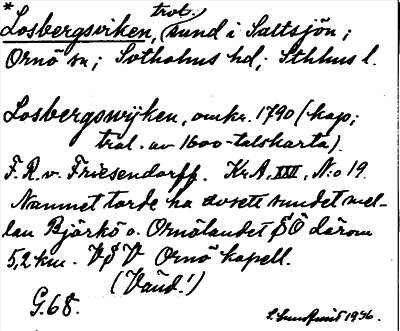 * Losbergsviken, trol. sund i Saltsjön;
Ornö sn; Sotholms hd; Sthlms l.
Losbergswijken, omkr. 1790 (kop;
trol. av 1600-talskarta).
F. R. v. Friesendorff. Kr.A. XXI, N:o 19.
Namnet torde ha avsett sundet mel-
lan Björkö o. Ornölandet SÖ därom
5,2 km. VSV Ornö kapell.
(Vänd!)
G.68. 1936.